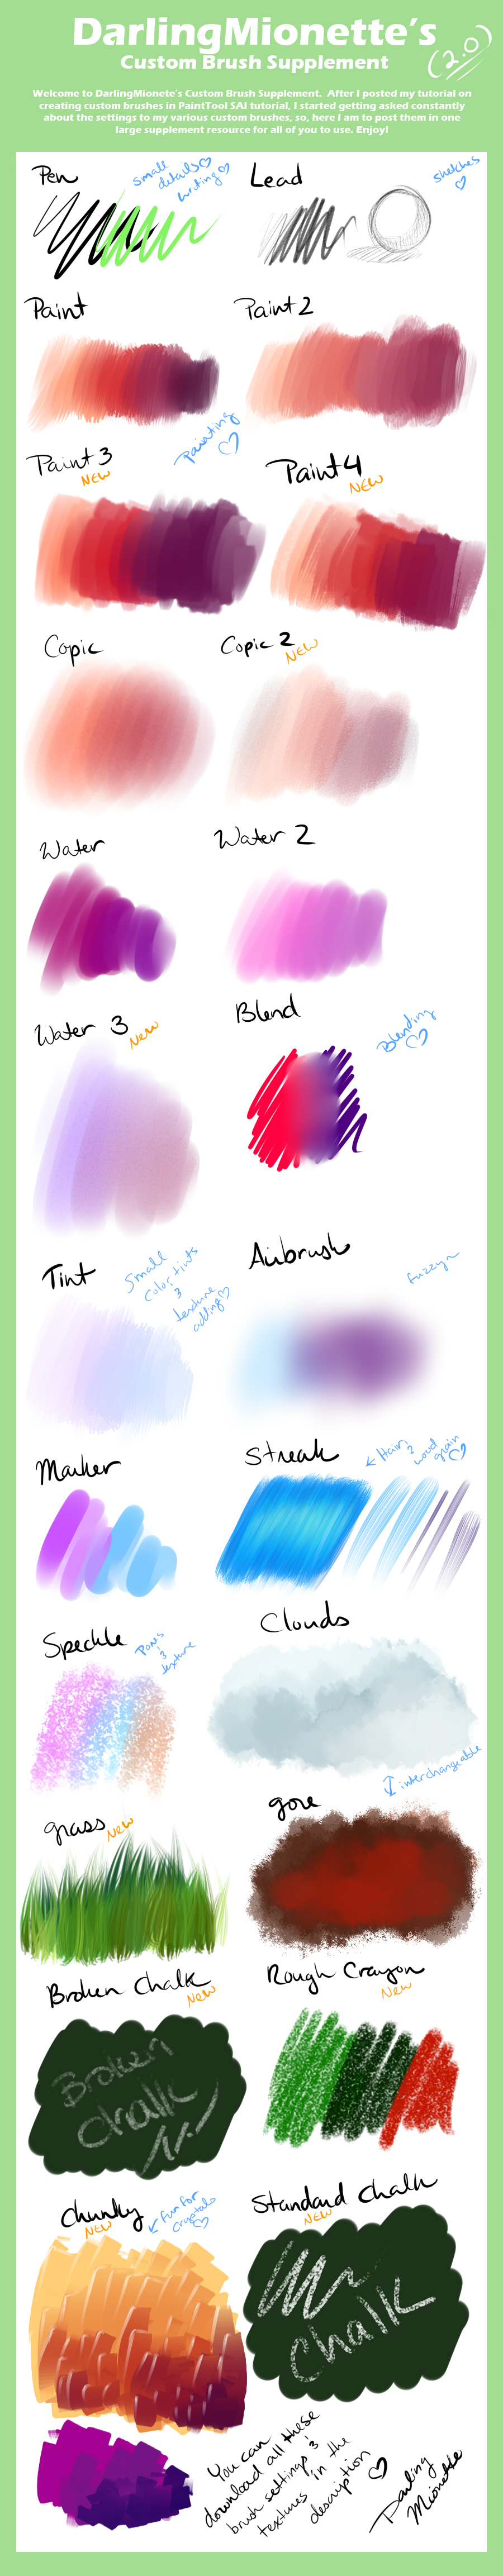 DarlingMionette's
Custom Brush Supplement
(2.0)
Welcome to DarlingMionete's Custom Brush Supplement. After I posted my tutorial on
creating custom brushes in PaintTool SAI tutorial, I started getting asked constantly
about the settings to my various custom brushes, so, here I am to post them in one
large supplement resource for all of you to use. Enjoy!
Pen
small
details♡
writing♡
Lead
sketches
♡
Paint
Paint 2
Painting
♡
Paint 3
NEW
Paint 4
NEW
Copic
Copic 2
NEW
Water
Water 2
Water 3
New
Blend
Blending
♡
Tint
Small
color tints
&
texture
adding♡
Airbrush
fuzzy~
Marker
Streak
← Hair &
wood
grain
♡
Speckle
Pores
&
texture
Clouds
↕ interchangeable
grass
New
gore
Broken Chalk
New
Broken
Chalk
Rough Crayon
New
Chunky
NEW
← fun for
crystals
♡
Standard Chalk
NEW
Chalk
You can
download all these
brush settings &
textures in the
description ♡
Darling
Mionette